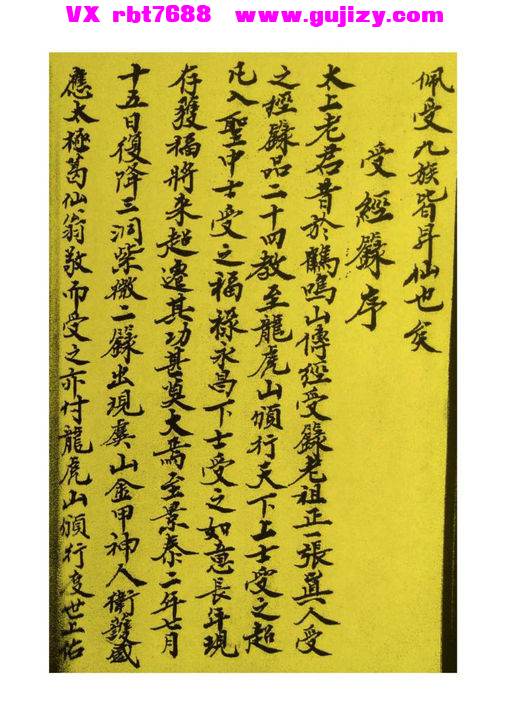 VX rbt7688 www.gujizy.com
佩受九族皆昇仙也矣
受經籙序
太上老君昔於鶴鳴山傳經受籙老祖正一張真人受
之經籙品二十四教至龍虎山頒行天下上士受之超
凡入聖中士受之福祿永昌下士受之如意長年現
存獲福將来超遣其功甚莫大焉至景泰二年七月
十五日復降三洞紫微二籙出現虞山金甲神人衛護感
應太極葛仙翁敬而受之亦付龍虎山頒行度世上佑